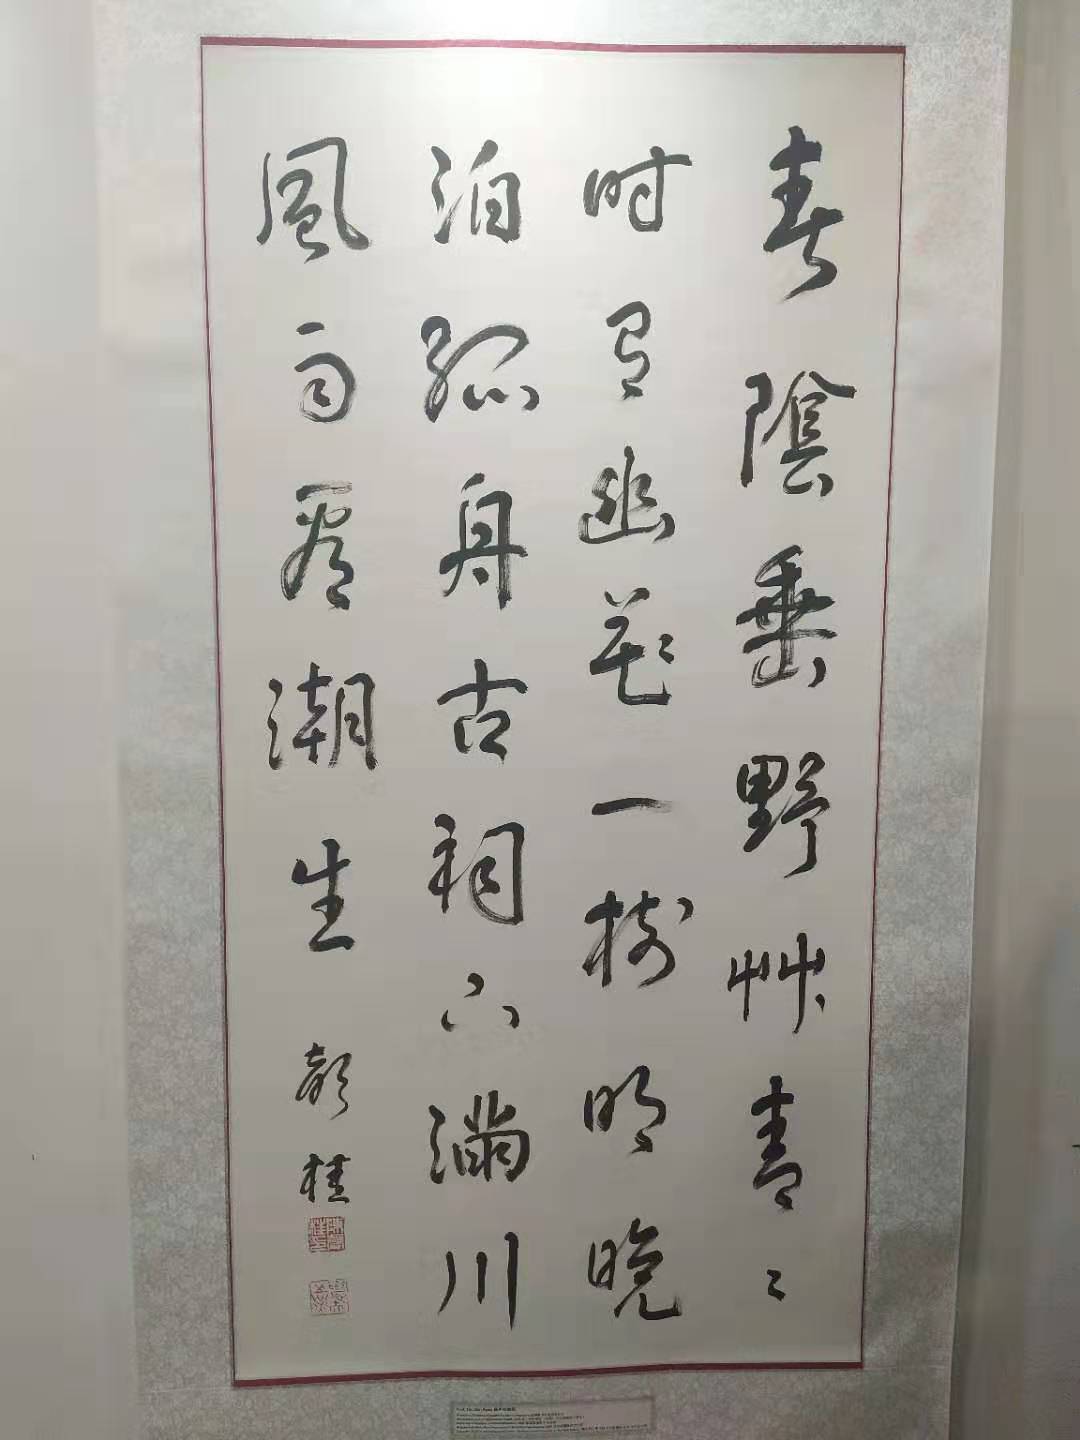 春陰垂野艸青〻
时有幽花一樹明晚
泊孤舟古祠下滿川
風雨看潮生 桂